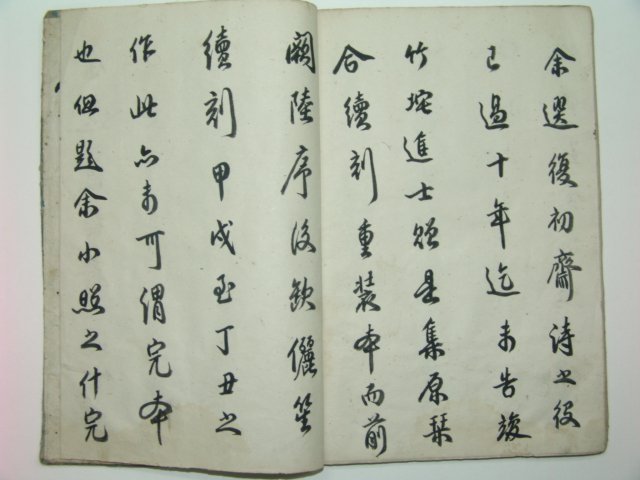 余選復初齋詩之役
已過十年迄未告竣
竹坨進士贈是集原槧
合續刻重裝本而前
闕陸序後缺儷笙
續刻甲戌至丁丑之
作此亦未可謂完本
也但題余小照之什完